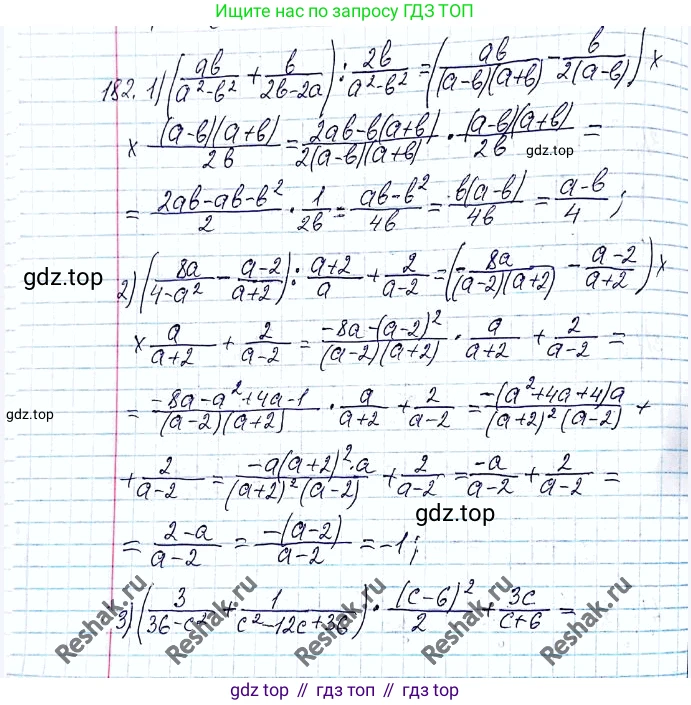 Ищите нас по запросу ГДЗ ТОП
182. 1) (ab/(a²-b²) + b/(2b-2a)) : 2b/(a²-b²) = (ab/((a-b)(a+b)) - b/(2(a-b))) ×
× ((a-b)(a+b))/2b = (2ab-b(a+b))/(2(a-b)(a+b)) · ((a-b)(a+b))/2b =
gdz.top
= (2ab-ab-b²)/2 · 1/2b = (ab-b²)/4b = b(a-b)/4b = (a-b)/4;
gdz.top
2) (8a/(4-a²) - (a-2)/(a+2)) : (a+2)/a + 2/(a-2) = (-8a/((a-2)(a+2)) - (a-2)/(a+2)) ×
× a/(a+2) + 2/(a-2) = (-8a-(a-2)²)/((a-2)(a+2)) · a/(a+2) + 2/(a-2) =
gdz.top
= (-8a-a²+4a-1)/((a-2)(a+2)) · a/(a+2) + 2/(a-2) = (-(a²+4a+4)a)/((a+2)²(a-2)) +
+ 2/(a-2) = (-a(a+2)²·a)/((a+2)²(a-2)) + 2/(a-2) = -a/(a-2) + 2/(a-2) =
gdz.top
= (2-a)/(a-2) = (-(a-2))/(a-2) = -1;
3) (3/(36-c²) + 1/(c²-12c+36)) · (c-6)²/2 + 3c/(c+6) =
Reshak.ru
Reshak.ru
Reshak.ru
Reshak.ru
Reshak.ru
gdz top // гдз топ // gdz.top